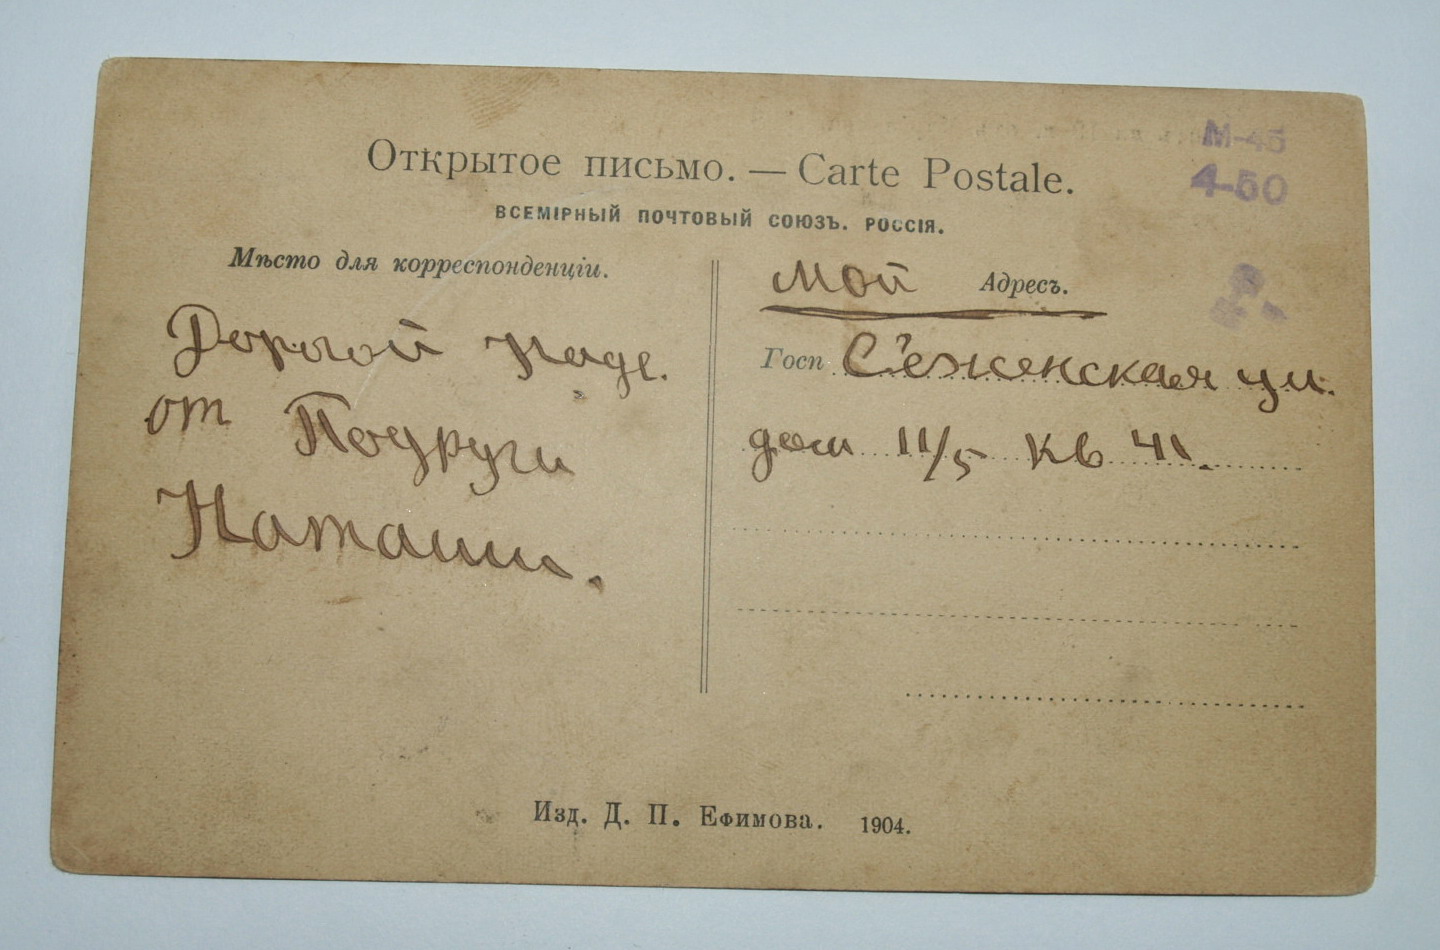 Открытое письмо. — Carte Postale.
ВСЕМІРНЫЙ ПОЧТОВЫЙ СОЮЗЪ. РОССІЯ.
М-45
4-50
Мѣсто для корреспонденціи.
Дорогой Наде.
от Подруги
Наташи.
мой Адресъ.
Госп Сеженская ул.
дом 11/5 кв 41.
Изд. Д. П. Ефимова. 1904.